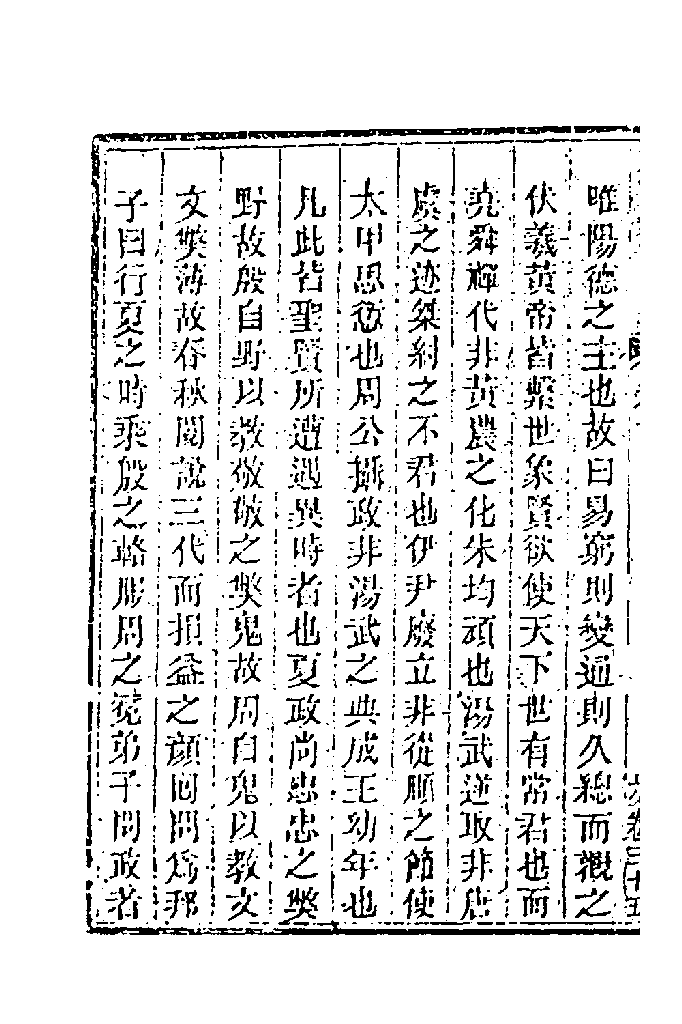 唯陽德之主也故曰易窮則變通則久總而觀之
伏羲黃帝皆繫世象賢欲使天下世有常君也而
堯舜禪代非黃農之化朱均頑也湯武逆取非唐
虞之迹桀紂之不君也伊尹廢立非從順之節使
太甲思愆也周公攝政非湯武之典成王幼年也
凡此皆聖賢所遭遇異時者也夏政尚忠忠之獘
野故殷自野以教敬敬之獘鬼故周自鬼以教文
文獘薄故春秋閱說三代而損益之顔回問爲邦
子曰行夏之時乘殷之輅服周之冕弟子問政者